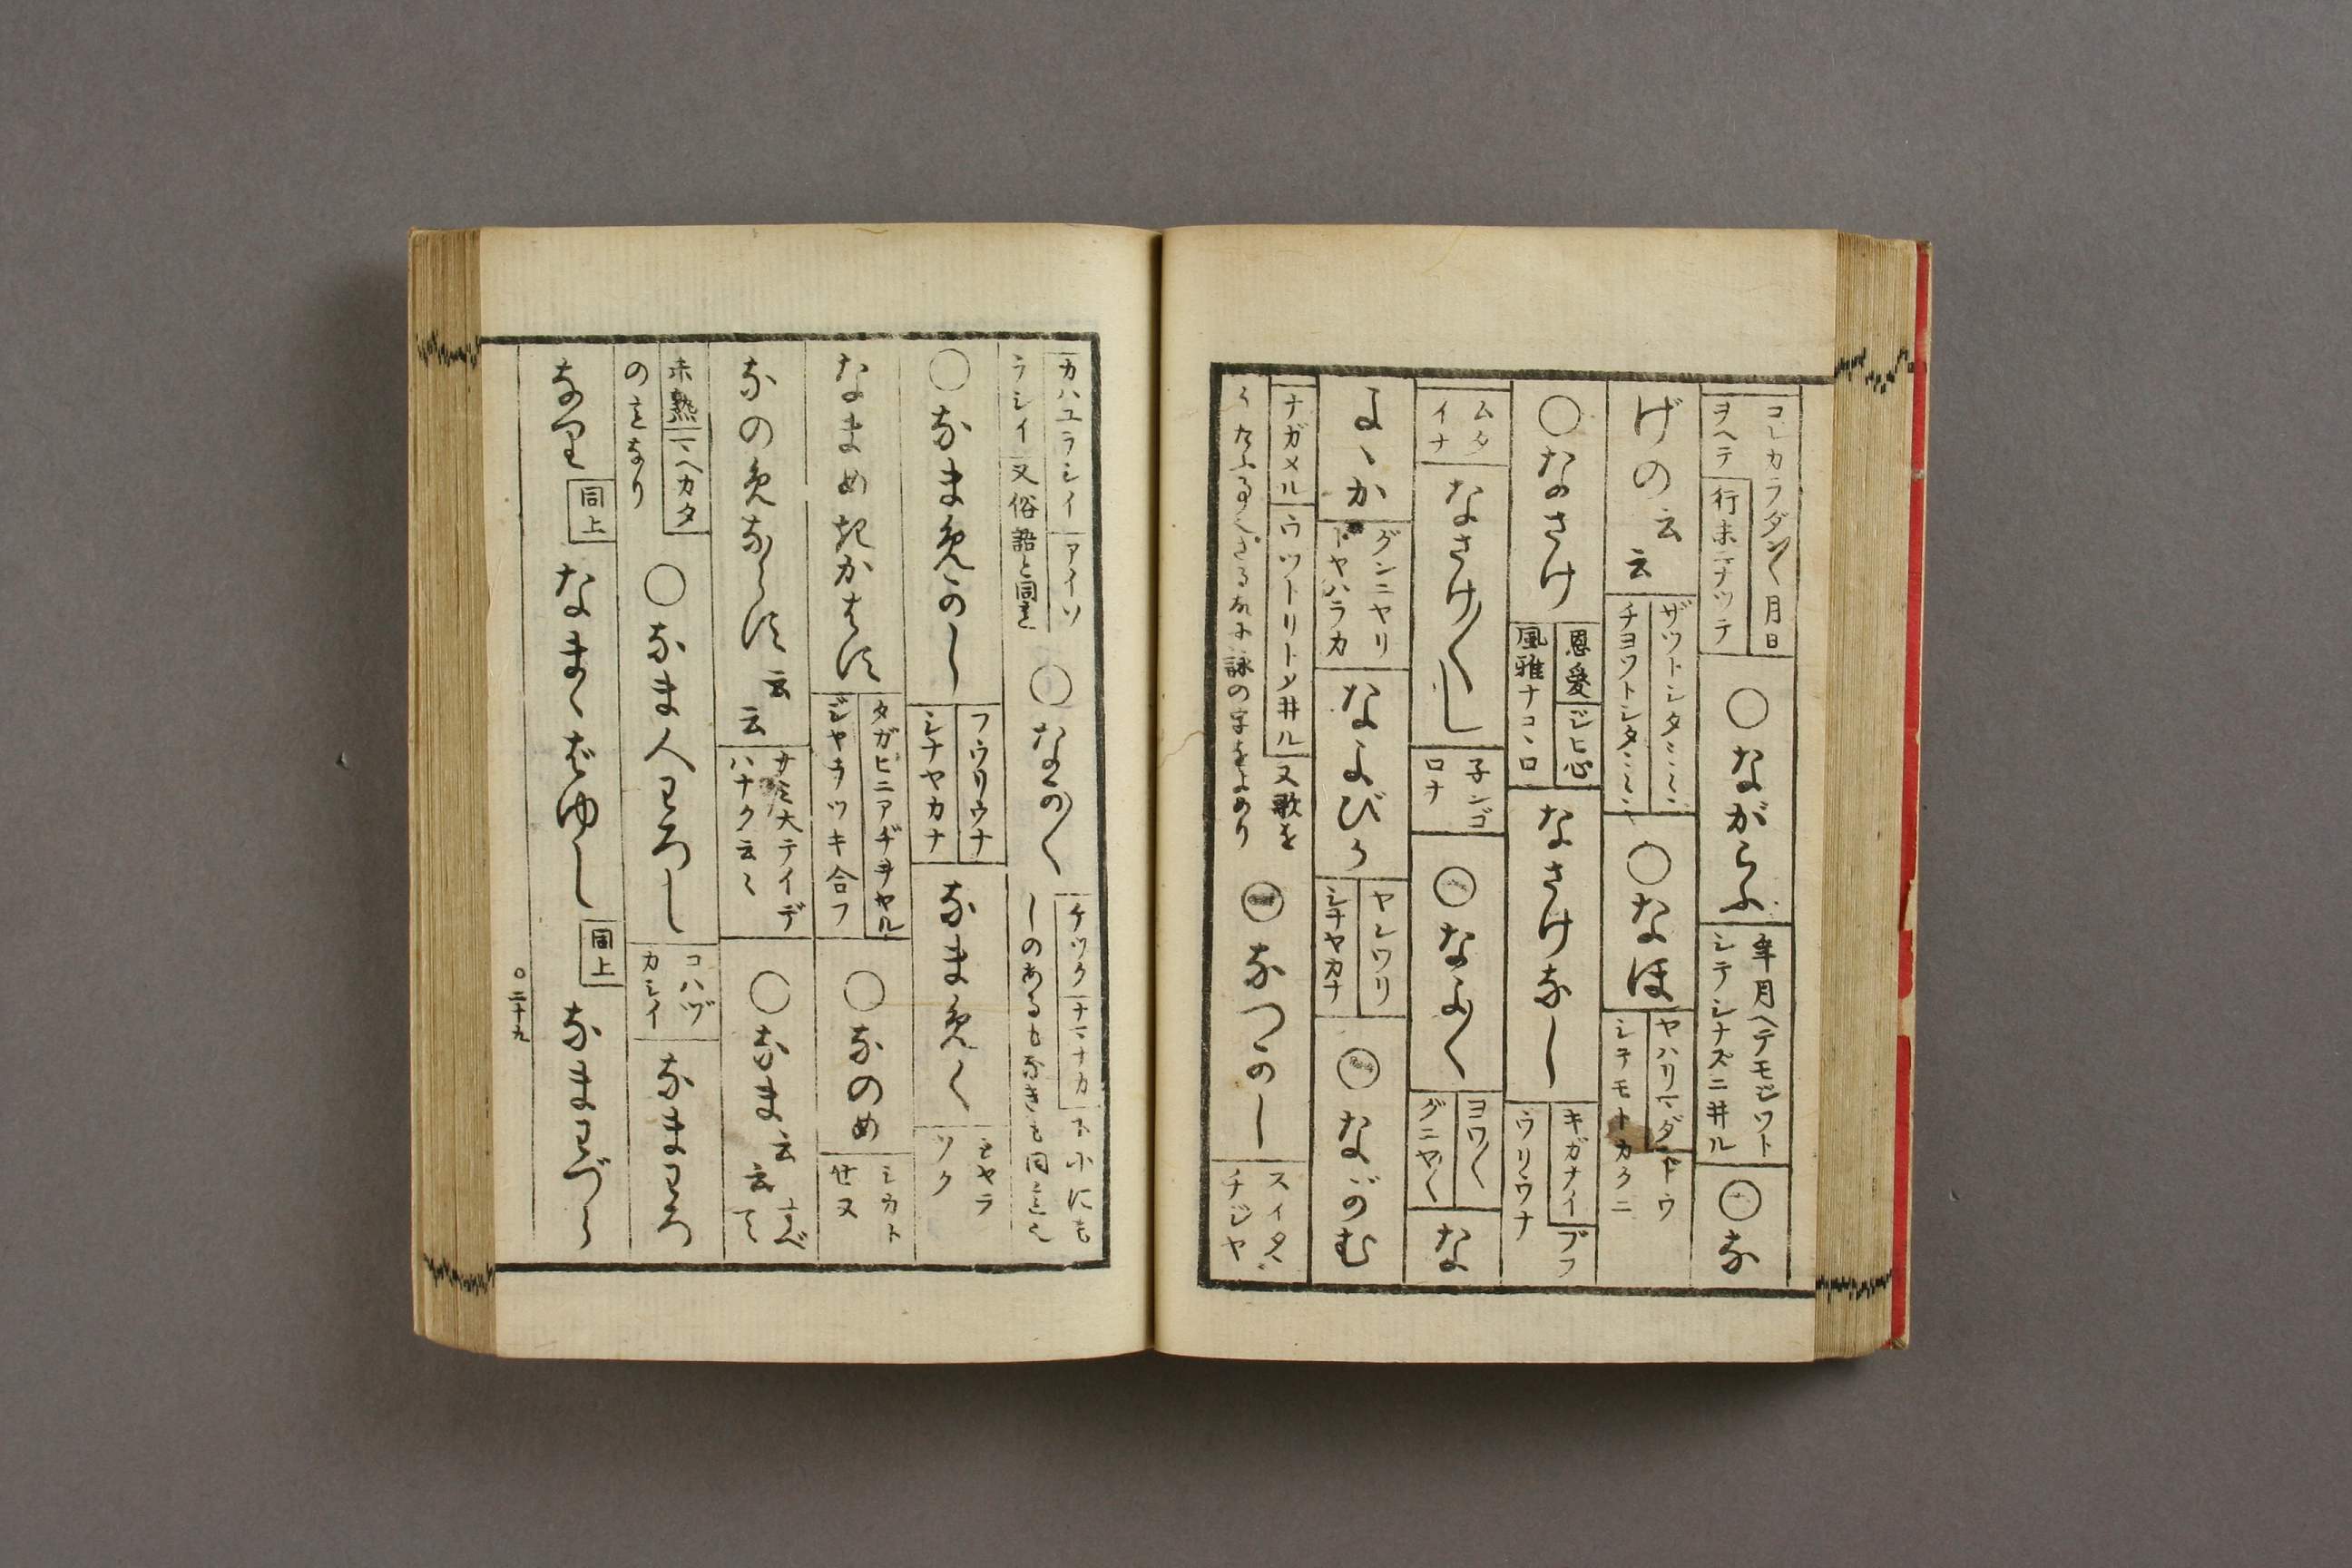 コレカラダン〳〵月日
ヲヘテ
行末ニナツテ
○ながらふ
年月ヘテモジツト
シテシナズニ井ル
○な
げの云云
ザツトシタミミ
チヨツトシタミミ
○なほ
ヤハリ
シテモトカクニ
○なさけ
恩愛
ジヒ心
風雅ナコヽロ
なさけなし
キガナイ
ブフ
ウリウナ
ムタ
イナ
なさけ〳〵し
子ンゴ
ロナ
○なよ〳〵
ヨワ〳〵
グニヤ〳〵
な
よゝか
グンニヤリ
トヤハラカ
なよびか
ヤンワリ
シナヤカナ
○ながむ
ナガメル
ウツトリトシ井ル
又歌を
詠の字をよめり
○なつかし
スイタ
チジヤ
カハユラシイ
アイソ
ラシイ
又俗語と同じ
○なか〳〵
ケツク
ナマナカ
下小にも
しのあるもなきも同じ
○なまめかし
フウリウナ
シナヤカナ
なまめく
シヤラ
ツク
なまめきかはす
タガヒニアヂヲヤル
ジヤラツキ合フ
○なのめ
シカト
せヌ
なのめならす云云
大テイデ
ハナク云〻
○なま云云
すべて
未熟
ヘカタ
のことなり
○なま人わろし
コハヅ
カシイ
なまわろ
なり
同上
なまゝばゆし
同上
なまわづら
○二十九